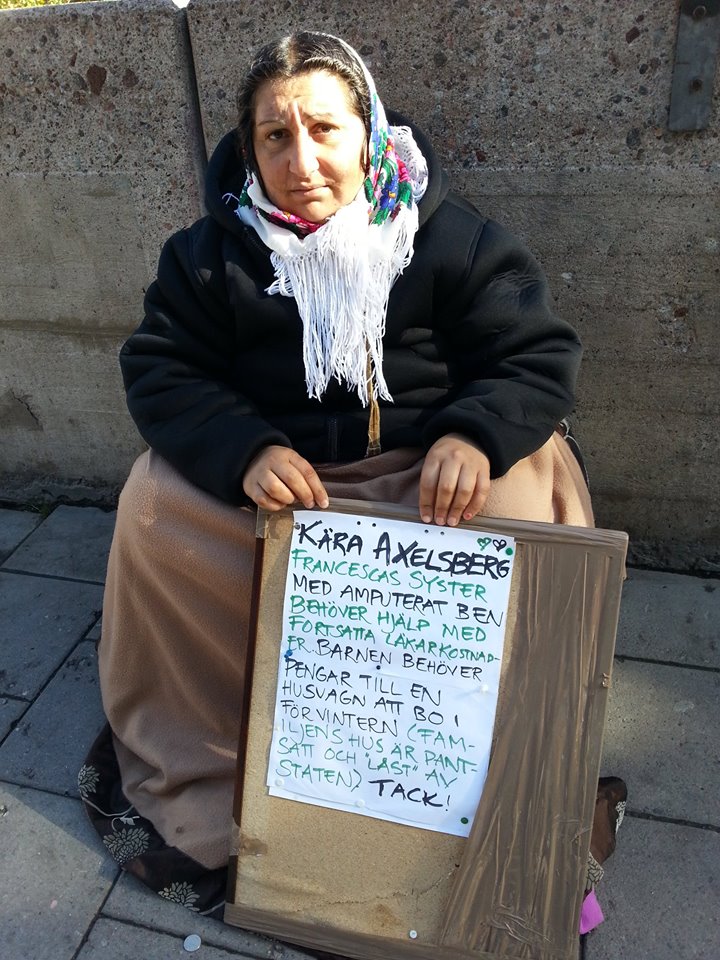 KÄRA AXELSBERG
FRANCESCAS SYSTER
MED AMPUTERAT BEN
BEHÖVER HJÄLP MED
FORTSATTA LÄKARKOSTNAD-
ER. BARNEN BEHÖVER
PENGAR TILL EN
HUSVAGN ATT BO I
FÖR VINTERN (FAM-
ILJENS HUS ÄR PANT-
SATT OCH "LÅST" AV
STATEN) TACK!